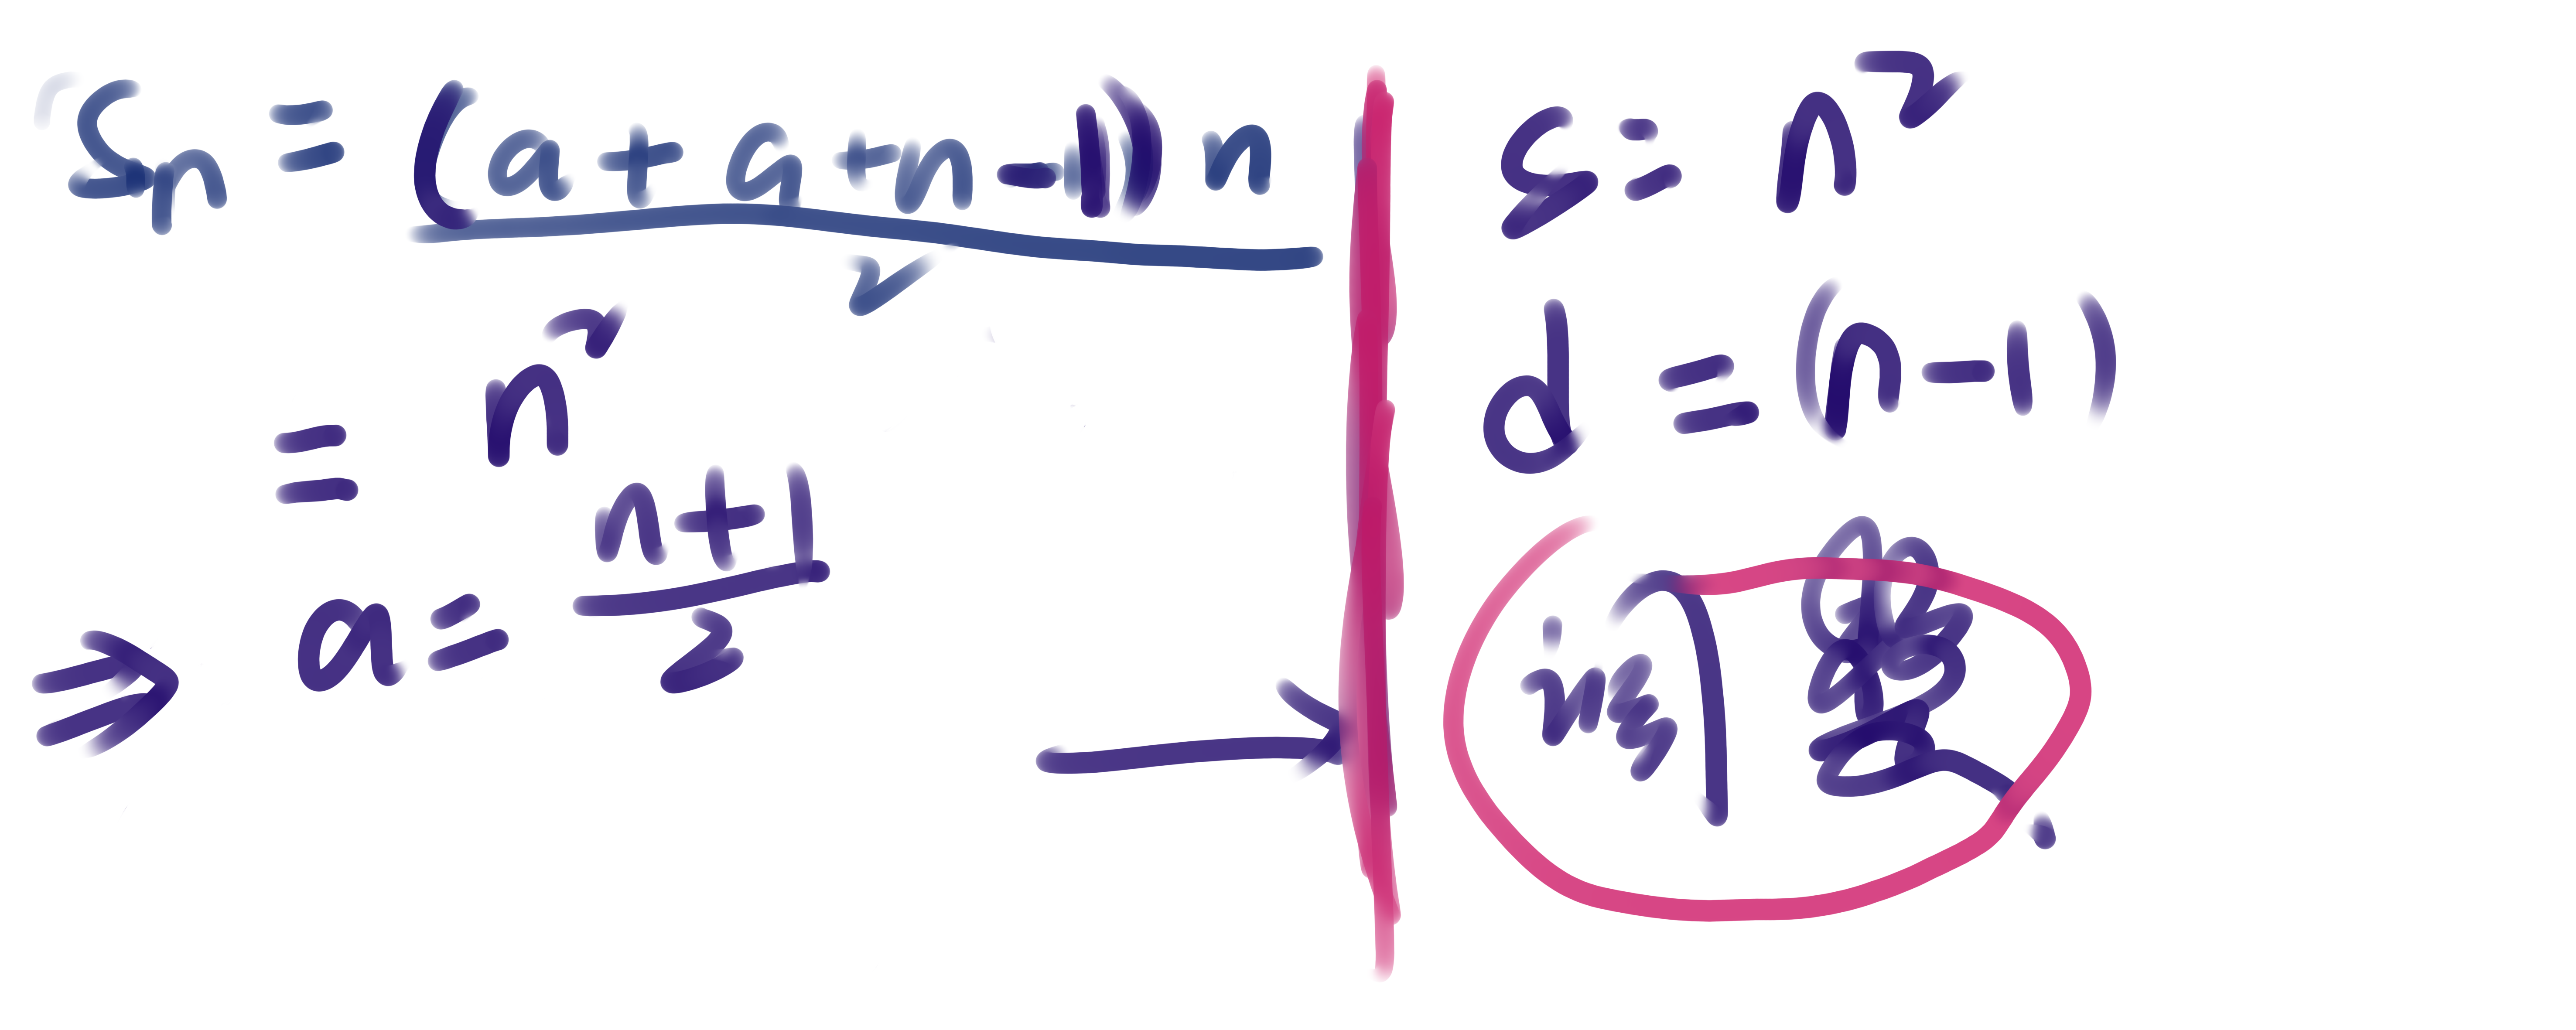 Sn = (a + a + n - 1) n
2
= n²
⇒ a = n+1
2
→
S = n²
d = (n-1)